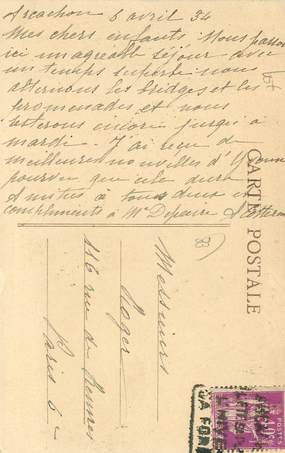 Arcachon 6 avril 34
Mes chers enfants. Nous passons
ici un agréable séjour avec
un temps superbe nous
alternons les bridges et les
promenades et nous
resterons encore jusqu'à
mardi - J'ai reçu de
meilleures nouvelles d'Yvonne
pourvu que cela dure
Amitiés à tous deux et
compliments à Mr Depaire
CARTE POSTALE
33
Messieurs
Roger
116 rue de Rennes
Paris 6e
POSTES